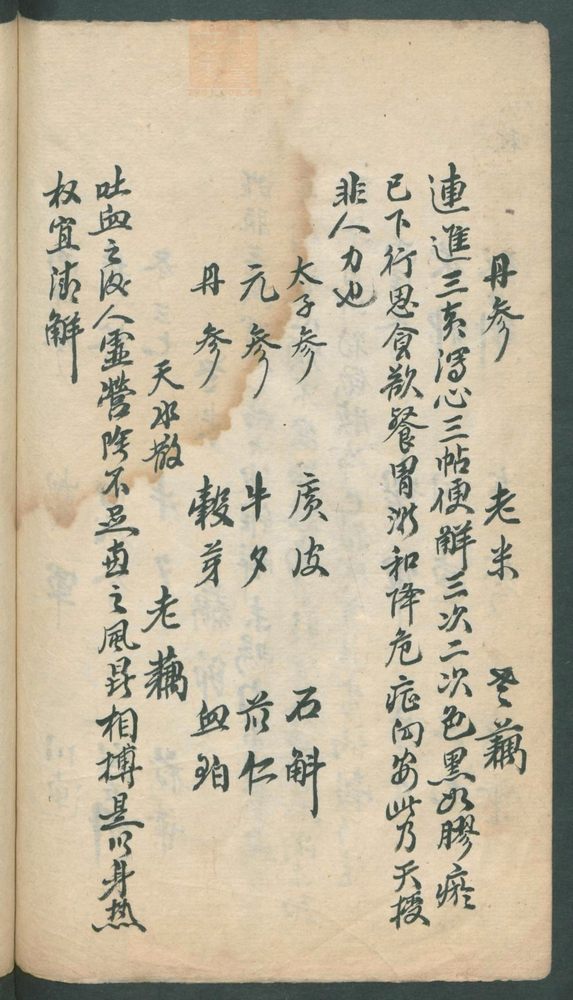 丹參 老米 老藕
連進三黃瀉心三帖便解三次二次色黑如膠瘀
已下行思食欲餐胃漸和降危症向安此乃天授
非人力也
太子參 廣皮 石斛
元參 牛夕 苡仁
丹參 穀芽 血珀
天水散 老藕
吐血之後人靈營陰不足 之風 相搏是以身熱
权宜清解